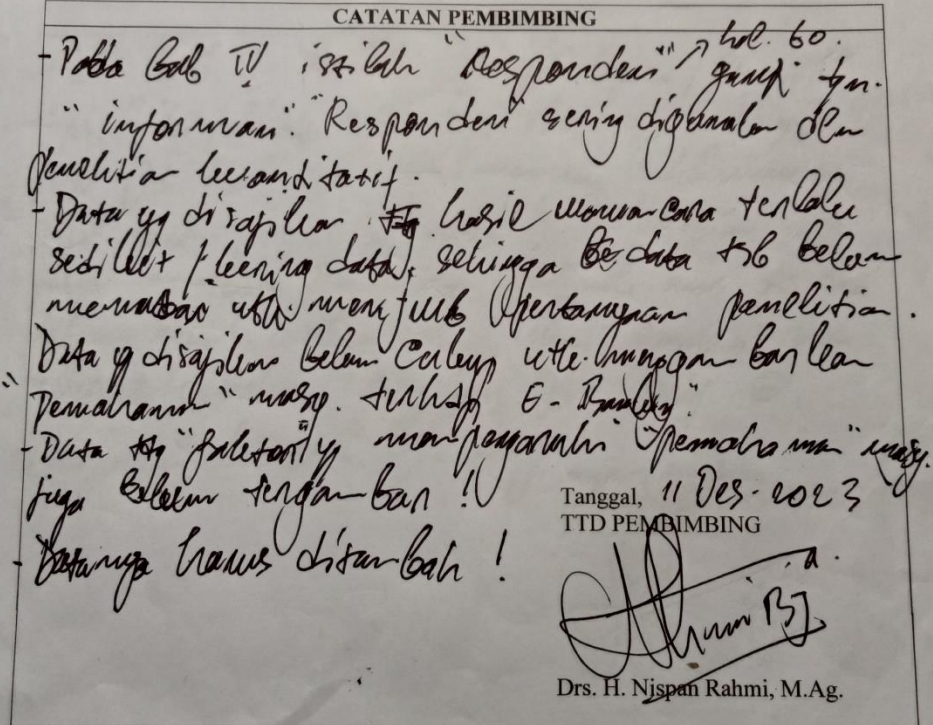 CATATAN PEMBIMBING
hal. 60.
- Pada Bab IV istilah "Responden" ganti dgn.
"informan". "Responden" sering digunakan dlm
penelitian kuantitatif.
- Data yg disajikan ttg hasil wawancara terlalu
sedikit (kering data), sehingga data tsb belum
memadai utk menjwb pertanyaan penelitian.
Data yg disajikan belum cukup utk. menggambarkan
"pemahaman" masy. terhdp E-Banking."
- Data ttg "faktor" yg mempengaruhi "pemahaman" masy.
juga belum tergambar !
- Datanya harus ditambah !
Tanggal, 11 Des. 2023
TTD PEMBIMBING
Drs. H. Nispan Rahmi, M.Ag.